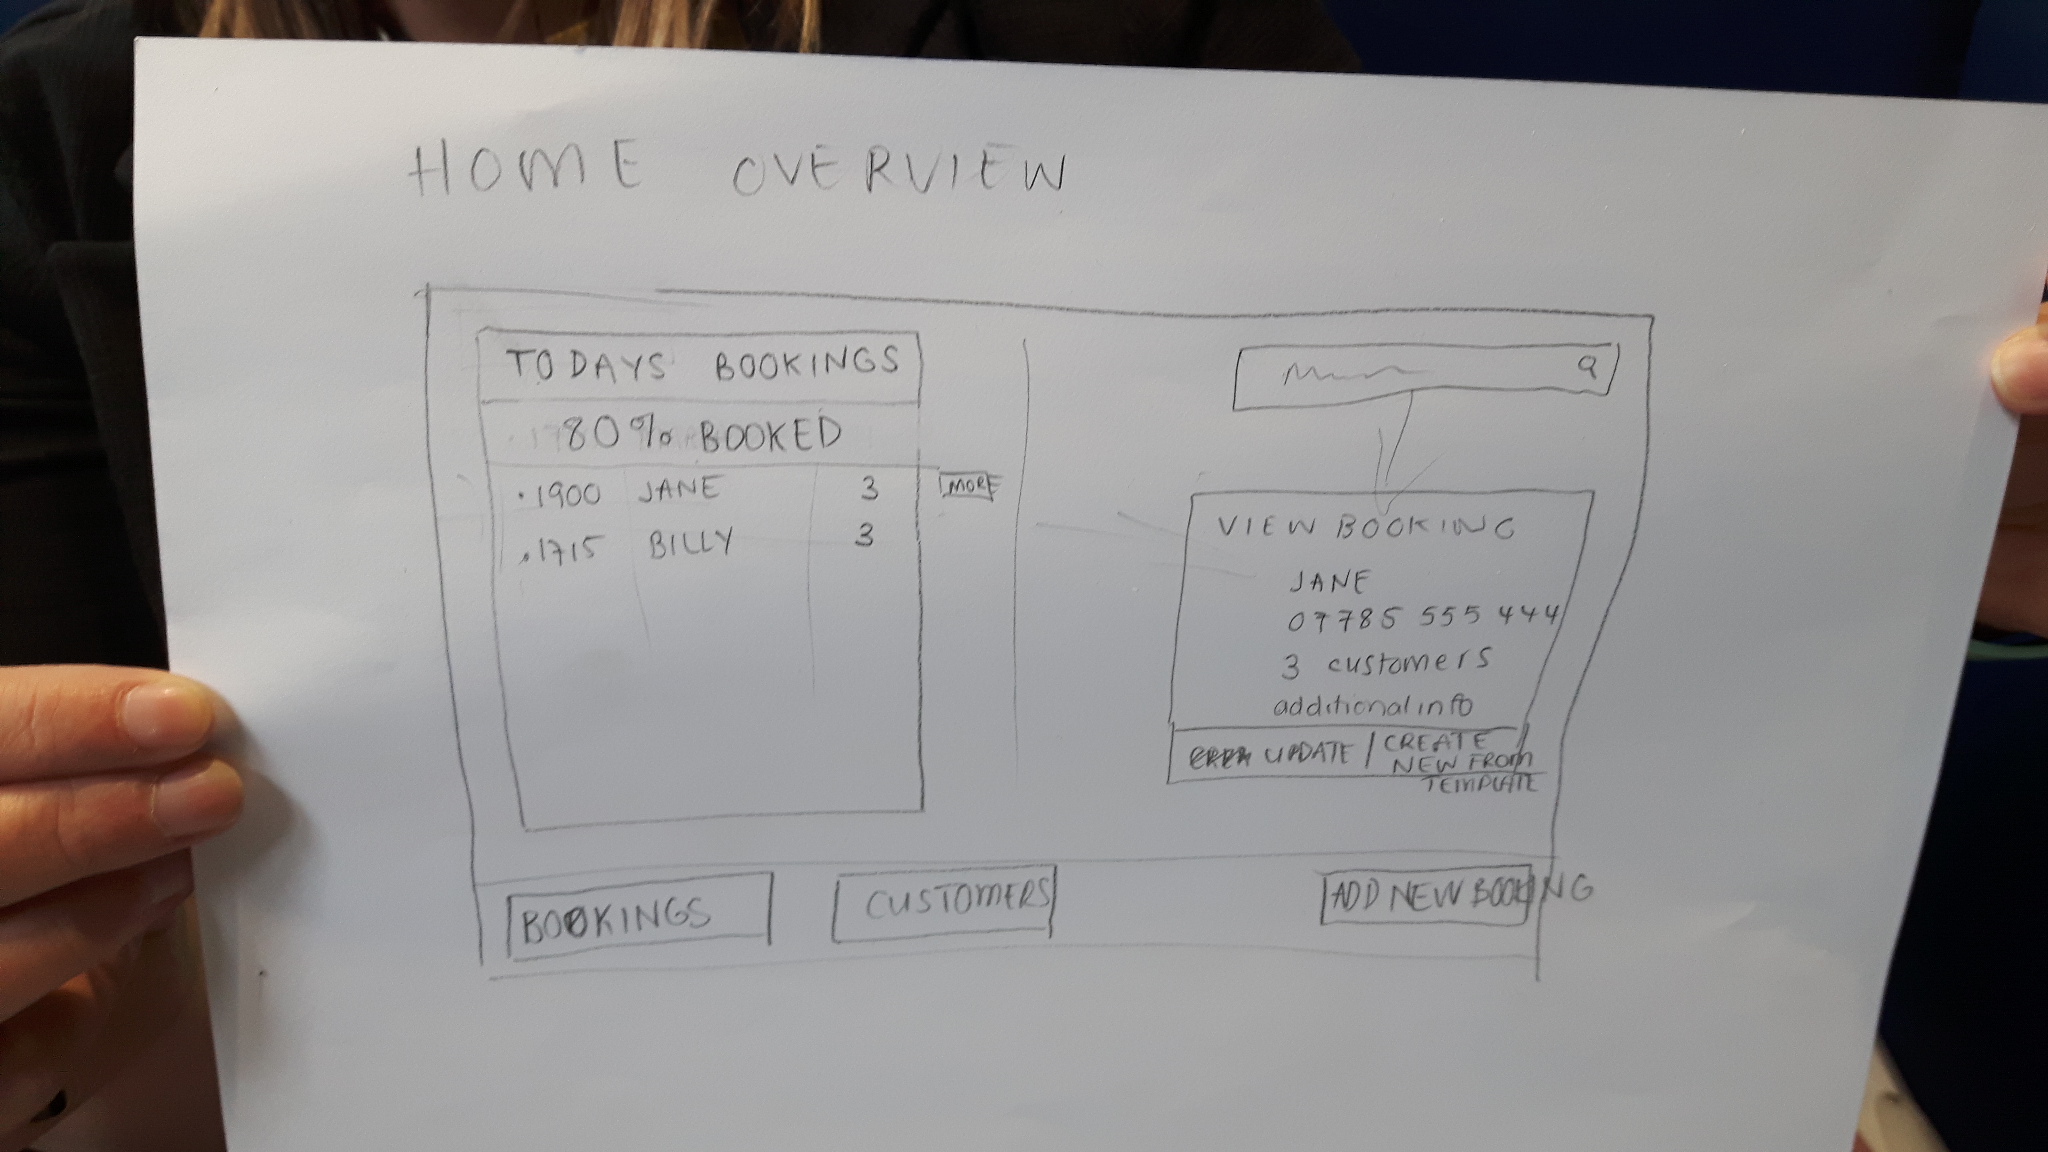 HOME OVERVIEW
TODAYS BOOKINGS
80% BOOKED
.1900 JANE 3 MORE
.1715 BILLY 3
VIEW BOOKING
JANE
07785 555 444
3 customers
additional info
UPDATE / CREATE
NEW FROM
TEMPLATE
BOOKINGS
CUSTOMERS
ADD NEW BOOKING